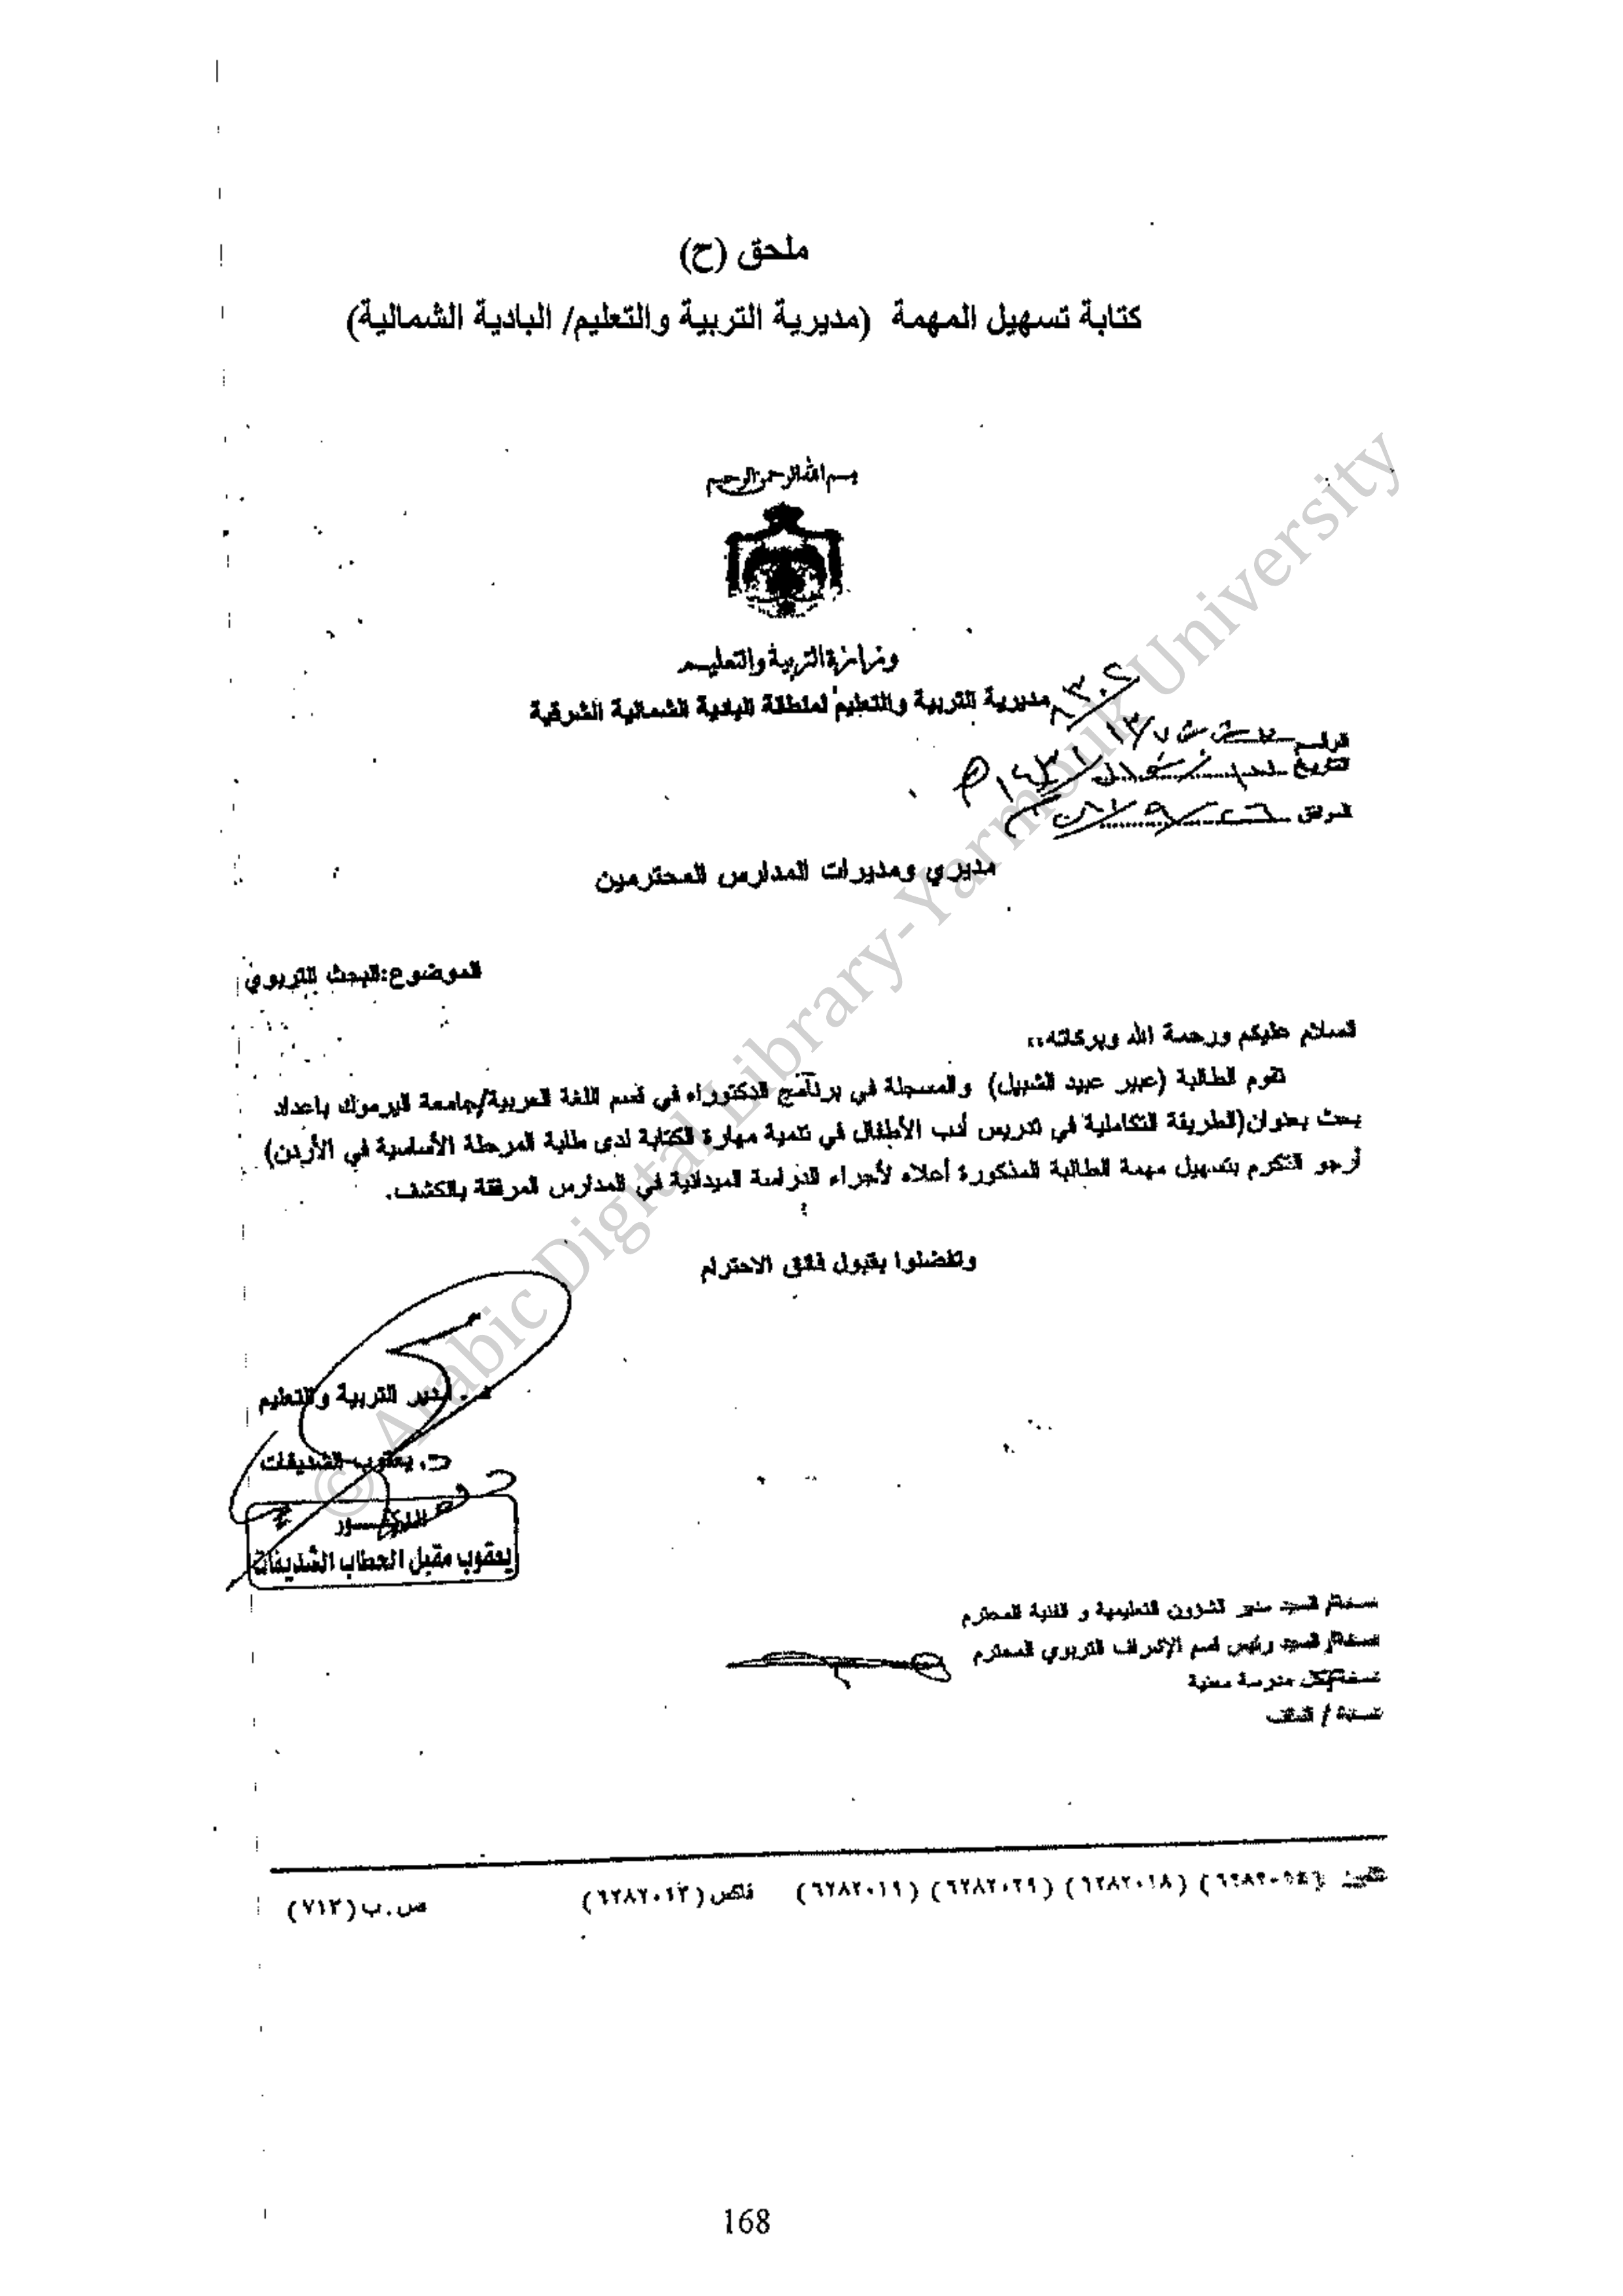 ملحق (ح)
كتابة تسهيل المهمة (مديرية التربية والتعليم/ البادية الشمالية)
بسم الله الرحمن الرحيم
وزارة التربية والتعليم
مديرية التربية والتعليم لمنطقة البادية الشمالية الشرقية
الرقم
التاريخ
الموافق
مديري ومديرات المدارس المحترمين
الموضوع:البحث التربوي
السلام عليكم ورحمة الله وبركاته،،
تقوم الطالبة (عبير عبيد الشبيل) والمسجلة في برنامج الدكتوراه في قسم اللغة العربية/جامعة اليرموك باعداد
بحث بعنوان(الطريقة التكاملية في تدريس أدب الأطفال في تنمية مهارة الكتابة لدى طلبة المرحلة الأساسية في الأردن)
أرجو التكرم بتسهيل مهمة الطالبة المذكورة أعلاه لأجراء الدراسة الميدانية في المدارس المرفقة بالكشف.
وتفضلوا بقبول فائق الاحترام
مدير التربية والتعليم
د. يعقوب الشديفات
الدكتور
يعقوب مقبل الحطاب الشديفات
نسخة/ السيد مدير الشؤون التعليمية و الفنية المحترم
نسخة/ السيد رئيس قسم الإشراف التربوي المحترم
نسخة/لكل مدرسة معنية
نسخة / الملف
(٦٢٨٢٠١٨) (٦٢٨٢٠٢٩) (٦٢٨٢٠١٩) فاكس (٦٢٨٢٠١٣) ص.ب (٧١٣)
© Arabic Digital Library-Yarmouk University
168